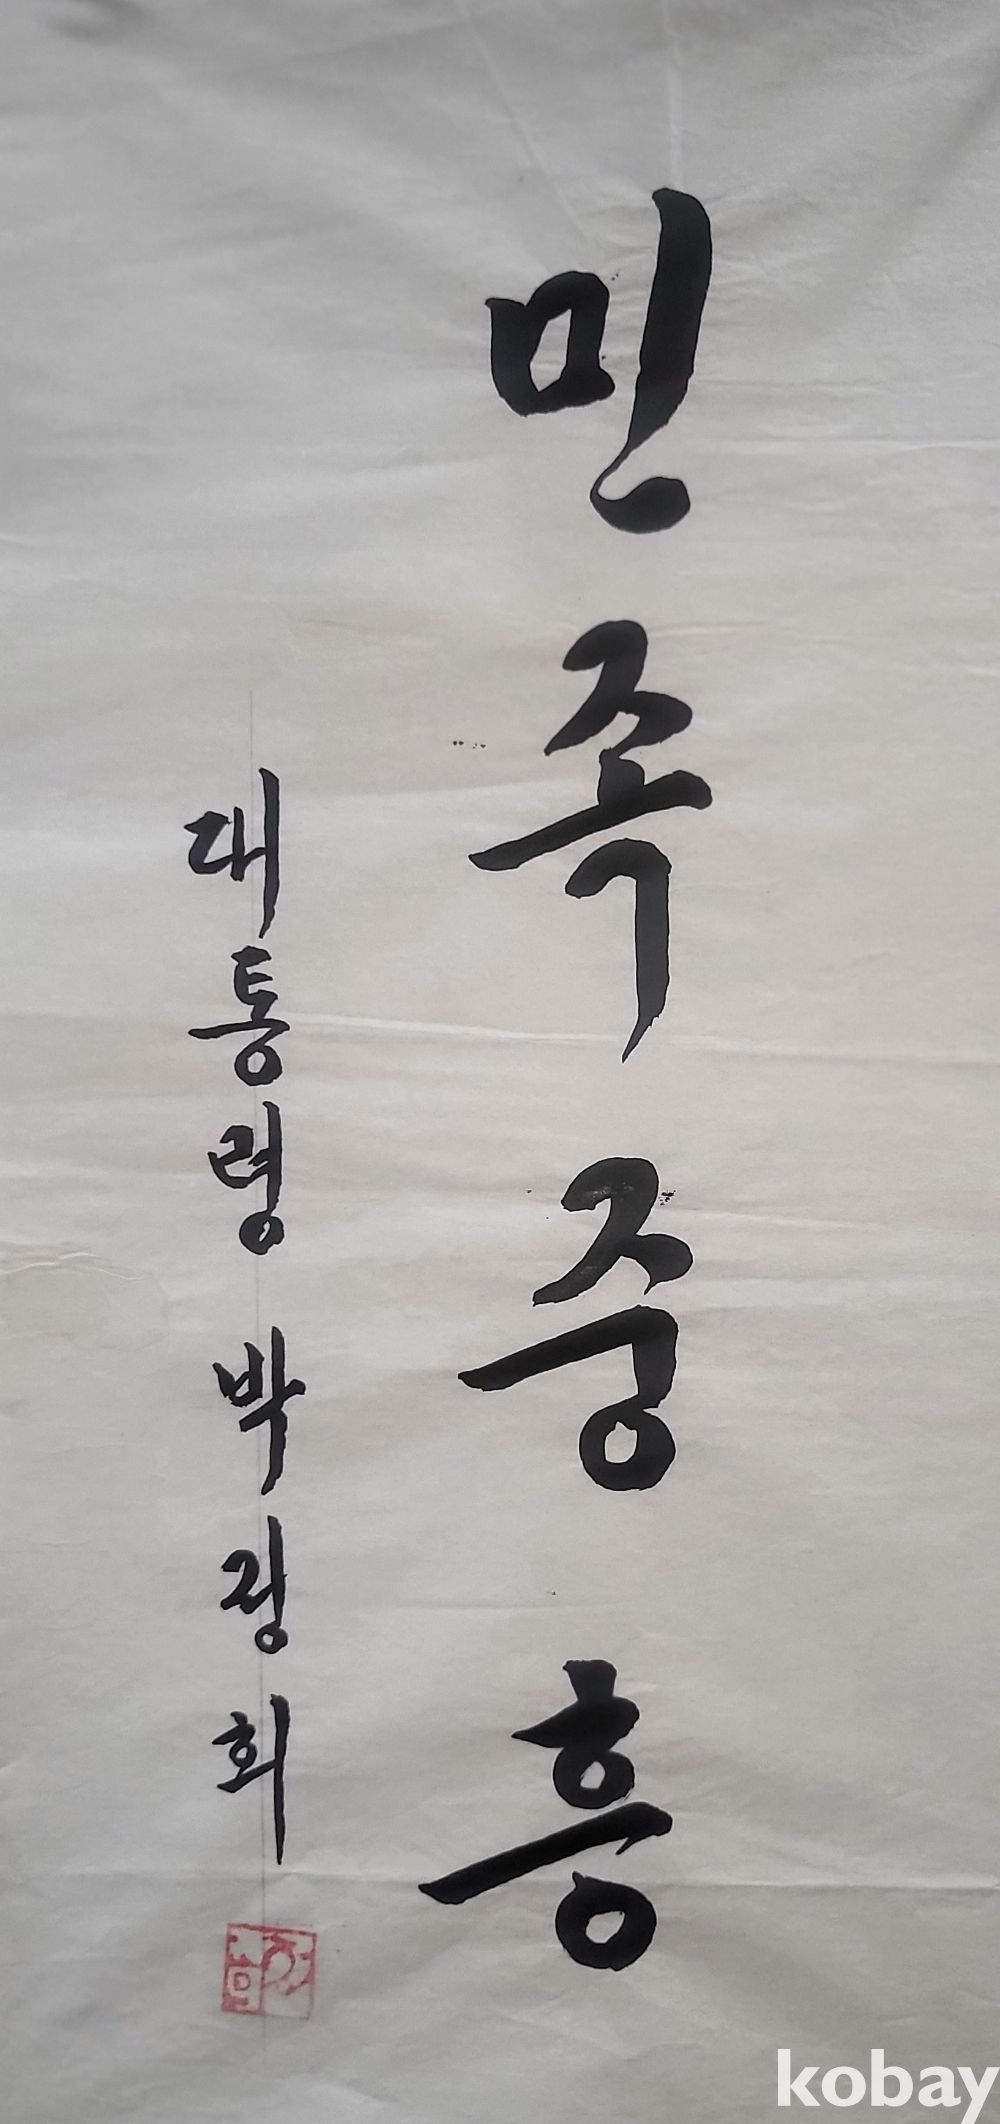 민족중흥
대통령 박정희
kobay